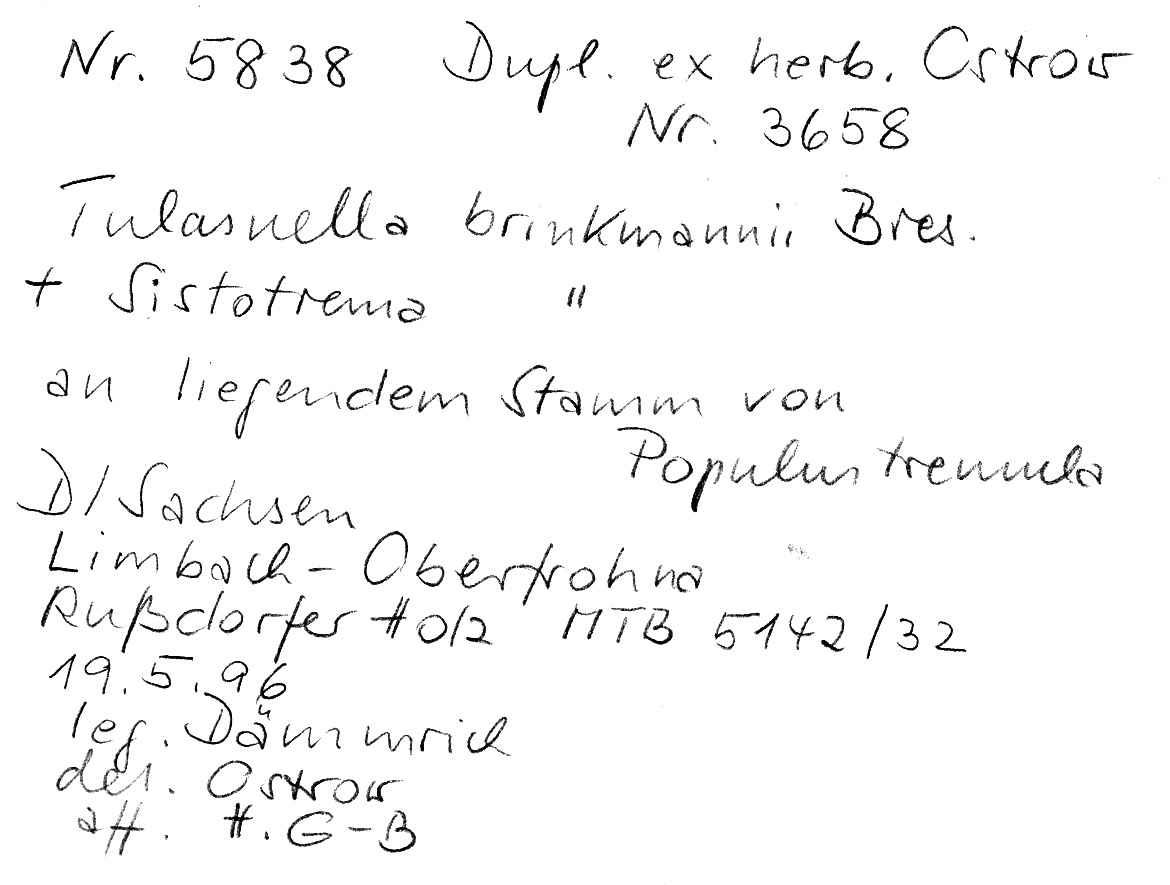 Nr. 5838 Dupl. ex herb. Ostrow
Nr. 3658
Tulasnella brinkmannii Bres.
+ Sistotrema "
an liegendem Stamm von
Populus tremula
D/Sachsen
Limbach-Oberfrohna
Rußdorfer Holz MTB 5142/32
19.5.96
leg. Dämmrich
det. Ostrow
att. H. G-B